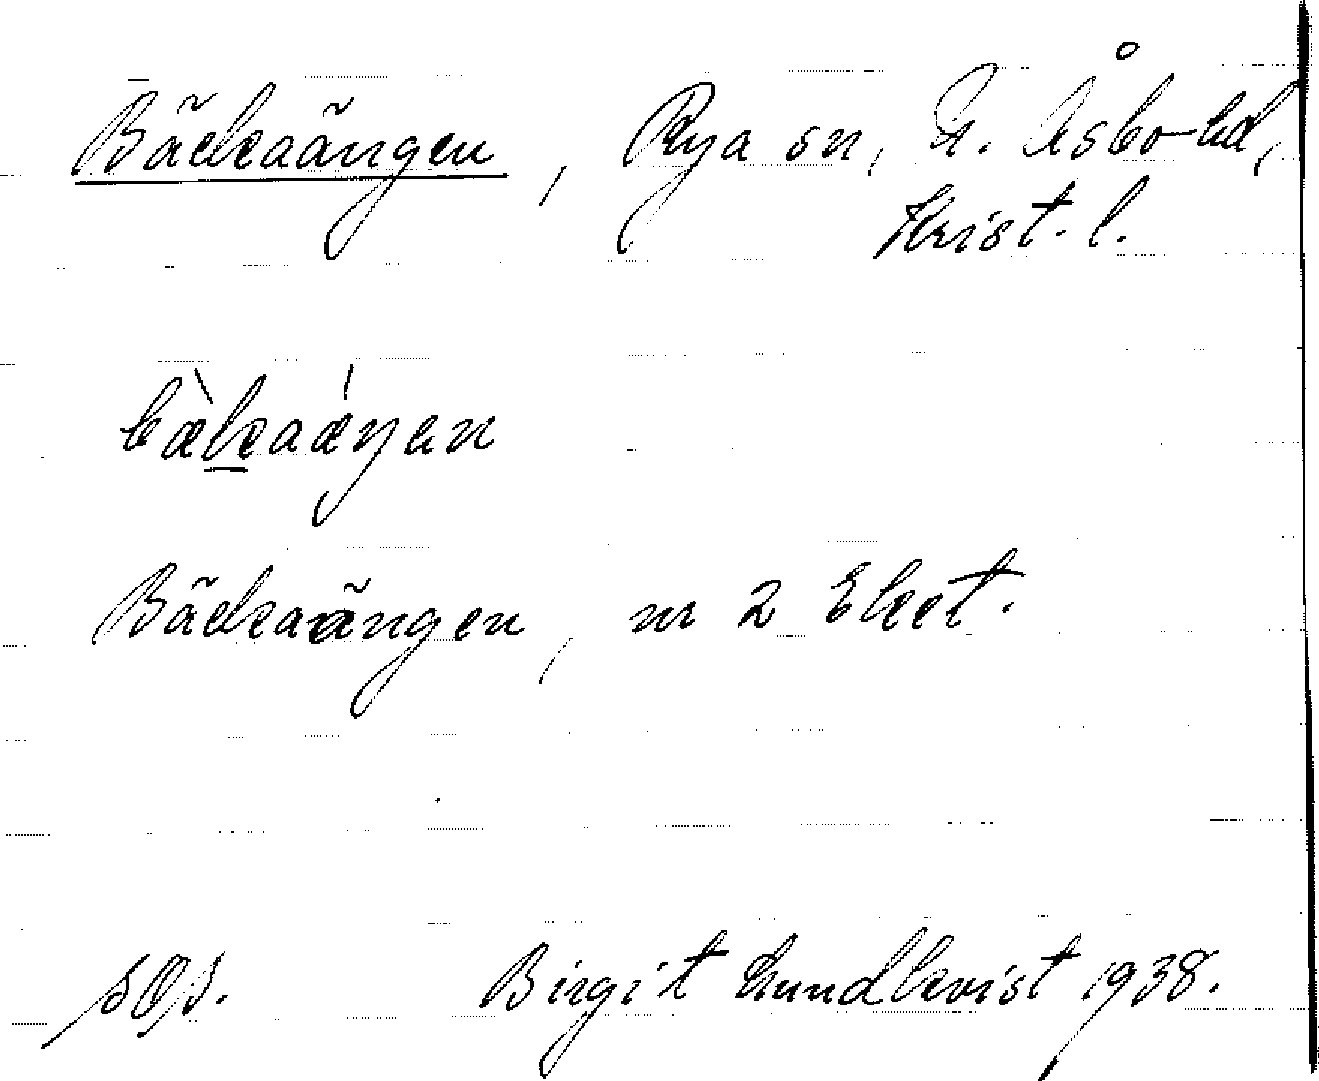 Bäckaängen, Rya sn, N. Åsbo hd,
Krist. l.
bæ̀kaǽŋen
Bäckaängen, nr 2 Eket.
Birgit Lundkvist 1938.